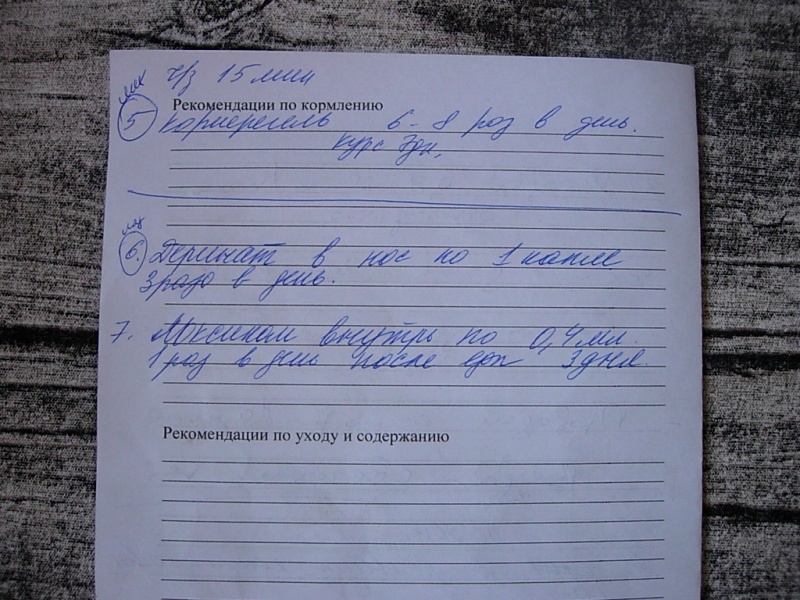 ч/з 15 мин
Рекомендации по кормлению
5 Корнерегель 6-8 раз в день.
курс 7дн.
6. Деринат в нос по 1 капле
3 раза в день.
7. Локсиком внутрь по 0,4 мл.
1 раз в день после еды 3 дня.
Рекомендации по уходу и содержанию